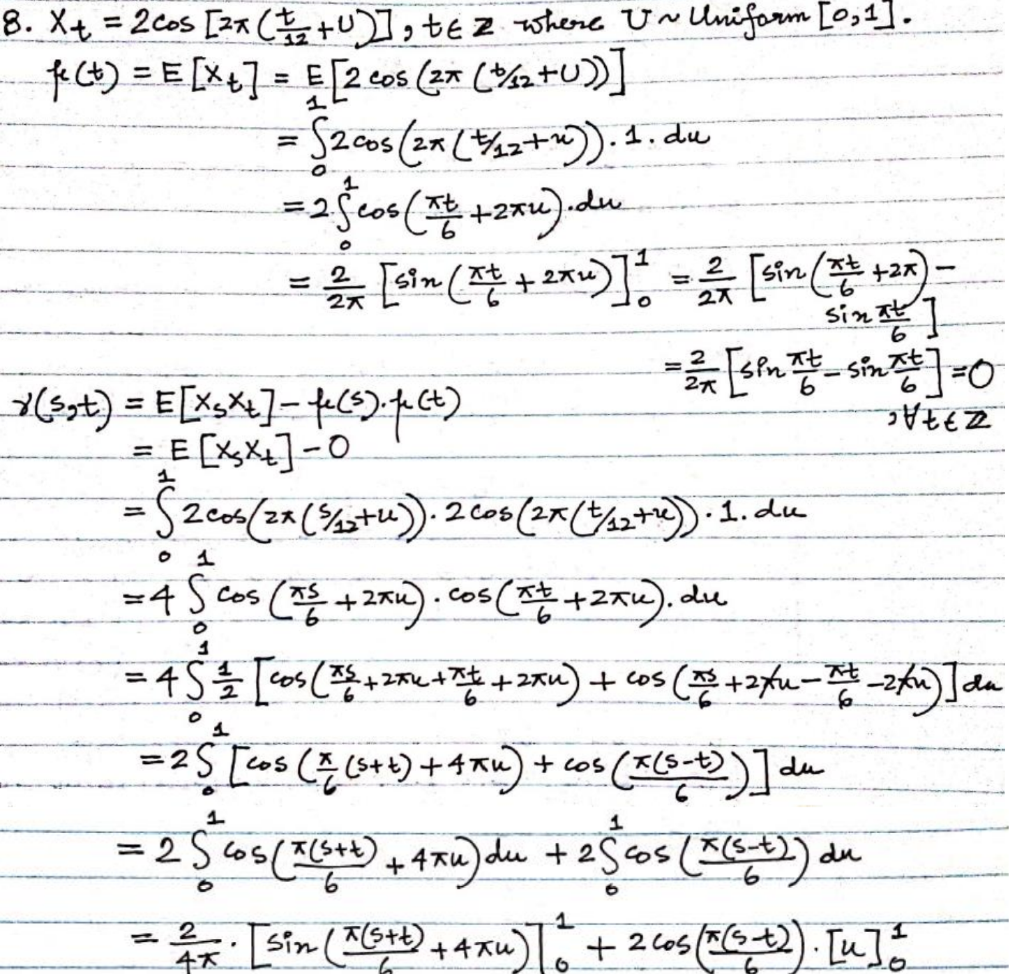 8. X_t = 2cos [2π(t/12 + U)], t∈ℤ where U ~ Uniform [0,1].
μ(t) = E[X_t] = E[2 cos (2π (t/12+U))]
= ∫₀¹ 2cos(2π(t/12+u)).1.du
= 2∫₀¹ cos(πt/6 + 2πu).du
= 2/2π [sin(πt/6 + 2πu)]₀¹ = 2/2π [sin(πt/6 + 2π) - sin πt/6]
= 2/2π [sin πt/6 - sin πt/6] = 0
, ∀t∈ℤ
γ(s,t) = E[X_sX_t] - μ(s).μ(t)
= E[X_sX_t] - 0
= ∫₀¹ 2cos(2π(s/12+u)).2cos(2π(t/12+u)).1.du
= 4 ∫₀¹ cos(πs/6 + 2πu).cos(πt/6 + 2πu).du
= 4 ∫₀¹ 1/2 [cos(πs/6 + 2πu + πt/6 + 2πu) + cos(πs/6 + 2πu - πt/6 - 2πu)] du
= 2 ∫₀¹ [cos(π/6 (s+t) + 4πu) + cos(π(s-t)/6)] du
= 2 ∫₀¹ cos(π(s+t)/6 + 4πu) du + 2 ∫₀¹ cos(π(s-t)/6) du
= 2/4π . [sin(π(s+t)/6 + 4πu)]₀¹ + 2cos(π(s-t)/6).[u]₀¹